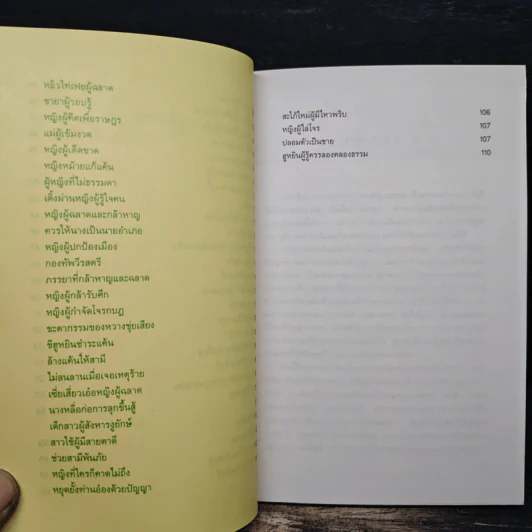 หลิวไท่เฟยผู้ฉลาด
ชายาผู้รอบรู้
หญิงผู้คิดเพื่อราษฎร
แม่ผู้เข้มงวด
หญิงผู้เด็ดขาด
หญิงหม้ายแก้แค้น
ผู้หญิงที่ไม่ธรรมดา
เติ้งม่านหญิงผู้รู้ใจคน
หญิงผู้ฉลาดและกล้าหาญ
ควรให้นางเป็นนายอำเภอ
หญิงผู้ปกป้องเมือง
กองทัพวีรสตรี
ภรรยาที่กล้าหาญและฉลาด
หญิงผู้กล้ารบศึก
หญิงผู้กำจัดโจรกบฏ
ชะตากรรมของหวางชุ่ยเลียง
ซีฮูหยินชำระแค้น
ล้างแค้นให้สามี
ไม่ลนลานเมื่อเจอเหตุร้าย
เซี่ยเสี่ยวเอ๋อหญิงผู้ฉลาด
นางหลื่อก่อการลุกขึ้นสู้
เด็กสาวผู้สังหารงูยักษ์
สาวใช้ผู้มีสายตาดี
ช่วยสามีพ้นภัย
หญิงที่ใครก็คาดไม่ถึง
หยุดยั้งท่านอ๋องด้วยปัญญา
สะใภ้ใหม่ผู้มีไหวพริบ 106
หญิงผู้ใส่โจร 107
ปลอมตัวเป็นชาย 107
ฮูหยินผู้รู้ครรลองคลองธรรม 110